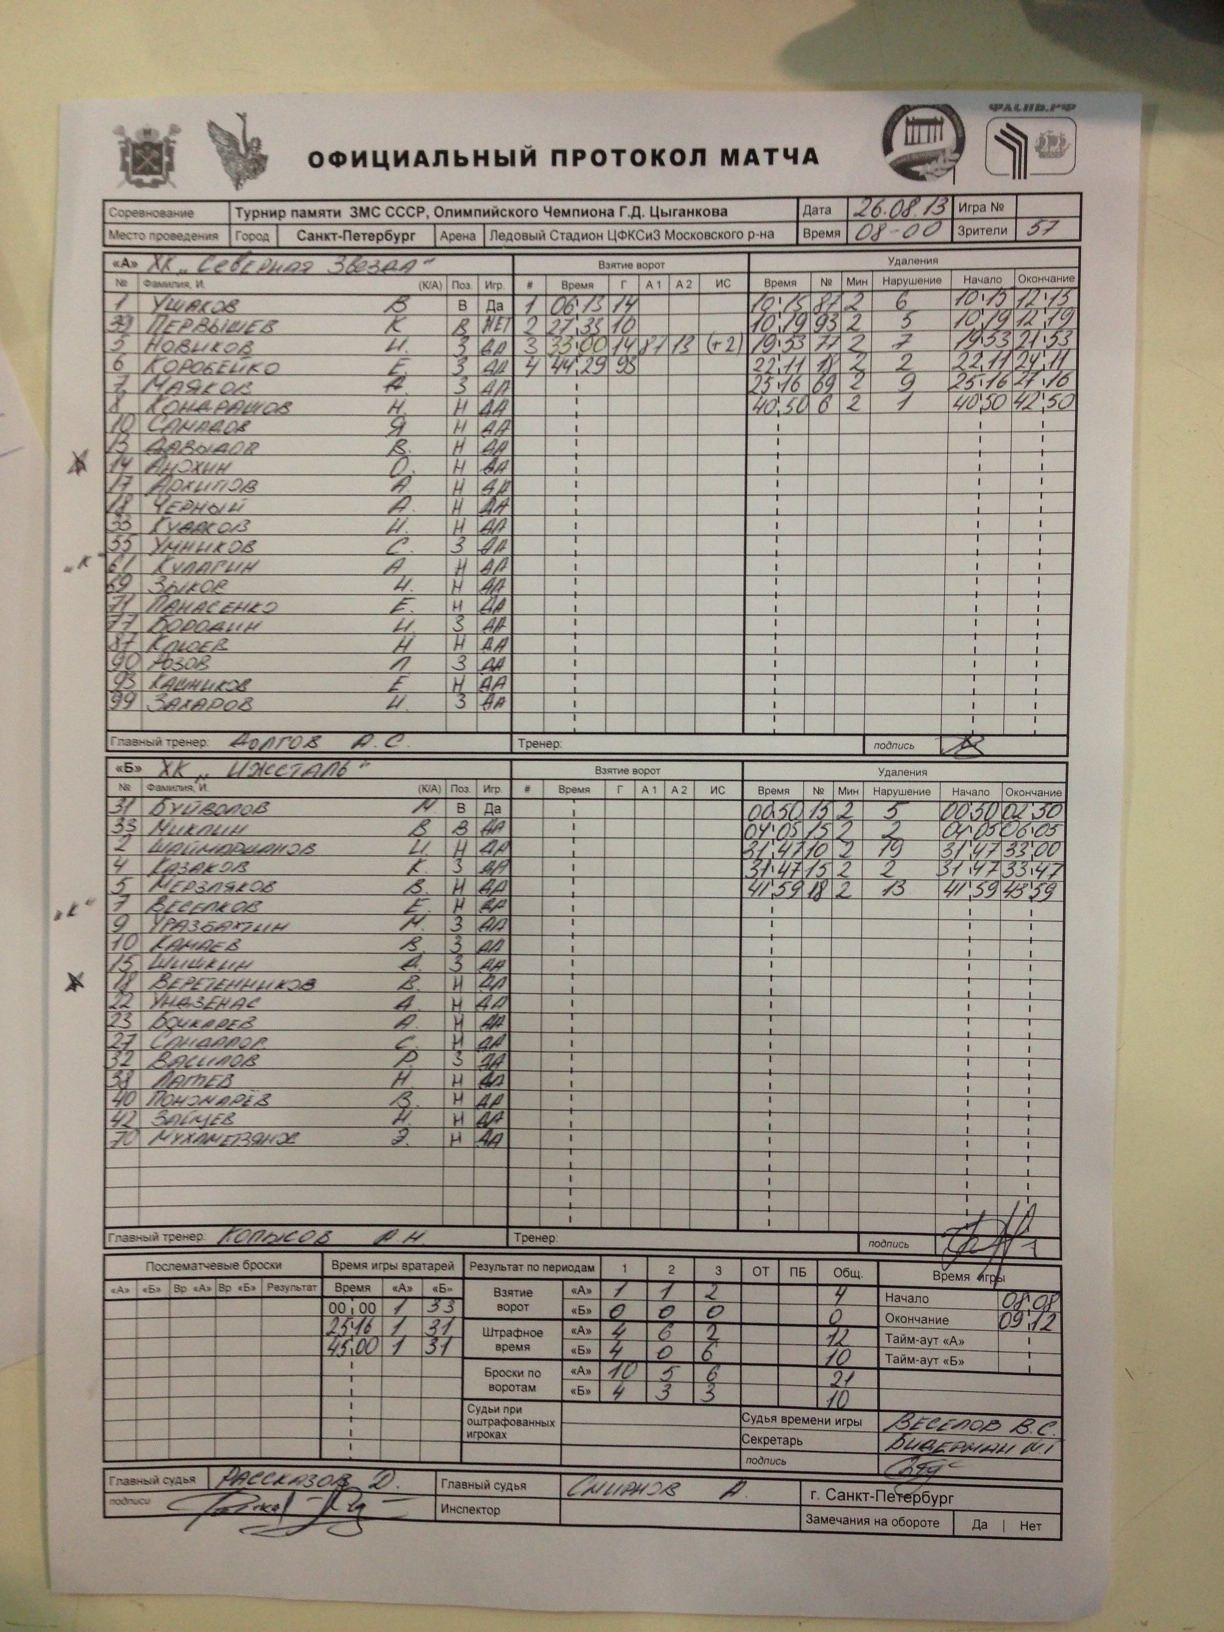 ФАСПБ.РФ
ОФИЦИАЛЬНЫЙ ПРОТОКОЛ МАТЧА
Соревнование Турнир памяти ЗМС СССР, Олимпийского Чемпиона Г.Д. Цыганкова Дата 26.08.13 Игра №
Место проведения Город Санкт-Петербург Арена Ледовый Стадион ЦФКСиЗ Московского р-на Время 08-00 Зрители 57
«А» ХК „Северная Звезда" Взятие ворот Удаления
№ Фамилия, И. (К/А) Поз. Игр. # Время Г А 1 А 2 ИС Время № Мин Нарушение Начало Окончание
1 УШАКОВ В В Да 1 06:13 14 10:15 87 2 6 10:15 12:15
39 ПЕРВЫШЕВ К В НЕТ 2 27:33 10 10:19 93 2 5 10:19 12:19
5 НОВИКОВ И. З ДА 3 33:00 14 87 13 (+2) 19:53 77 2 7 19:53 21:53
6 КОРОБЕЙКО Е. З ДА 4 44:29 93 22:11 18 2 2 22:11 24:11
7 МАЯКОВ А. З ДА 25:16 69 2 9 25:16 27:16
8 КОНДРАШОВ Н. Н ДА 40:50 6 2 1 40:50 42:50
10 САМАДОВ Я Н ДА
13 ДАВЫДОВ В. Н ДА
14 АНОХИН О. Н ДА
17 АРХИПОВ А. Н ДА
18 ЧЕРНЫЙ А. Н ДА
33 КУДАКОВ И. Н ДА
55 УМНИКОВ С. З ДА
„К" 61 КУЛАГИН А Н ДА
69 ЗЫКОВ И. Н ДА
71 ПАНАСЕНКО Е. Н ДА
77 БОРОДИН И З ДА
87 КЛЮЕВ Н Н ДА
90 РОЗОВ Л З ДА
93 КАШНИКОВ Е Н ДА
99 ЗАХАРОВ И. З ДА
Главный тренер: ДОЛГОВ А.С. Тренер: подпись
«Б» ХК „ИЖСТАЛЬ" Взятие ворот Удаления
№ Фамилия, И. (К/А) Поз. Игр. # Время Г А 1 А 2 ИС Время № Мин Нарушение Начало Окончание
31 БУЙВОЛОВ М. В Да 00:50 15 2 5 00:50 02:50
33 МИКЛИН В В ДА 04:05 15 2 2 04:05 06:05
2 ШАЙМАРДАНОВ И. Н ДА 31:47 10 2 19 31:47 33:00
4 КАЗАКОВ К. З ДА 31:47 15 2 2 31:47 33:47
5 МЕРЗЛЯКОВ В. Н ДА 41:59 18 2 13 41:59 43:59
„К" 7 ВЕСЕЛКОВ Е. Н ДА
9 УРАЗБАХТИН М. З ДА
10 КАМАЕВ В. З ДА
15 ШИШКИН А. З ДА
18 ВЕРЕТЕННИКОВ В. Н ДА
22 А. Н ДА
23 БОЧКАРЕВ А. Н ДА
27 С. Н ДА
32 ВАСИЛОВ Р. З ДА
38 Н. Н ДА
40 ПОНОМАРЁВ В. Н ДА
42 ЗАЙЦЕВ Н. Н ДА
70 МУХАМЕТЗЯНОВ Э. Н ДА
Главный тренер: КОПЫСОВ А.Н. Тренер: подпись
Послематчевые броски Время игры вратарей Результат по периодам 1 2 3 ОТ ПБ Общ. Время игры
«А» «Б» Вр «А» Вр «Б» Результат Время «А» «Б» Взятие ворот «А» 1 1 2 4 Начало 08:08
00:00 1 33 «Б» 0 0 0 0 Окончание 09:12
25:16 1 31 Штрафное время «А» 4 6 2 12 Тайм-аут «А»
45:00 1 31 «Б» 4 0 6 10 Тайм-аут «Б»
Броски по воротам «А» 10 5 6 21
«Б» 4 3 3 10
Судьи при оштрафованных игроках Судья времени игры ВЕСЕЛОВ В.С.
Секретарь БИВЕРМАН
подпись
Главный судья РАССКАЗОВ Д. Главный судья СМИРНОВ А. г. Санкт-Петербург
подписи Инспектор Замечания на обороте Да | Нет